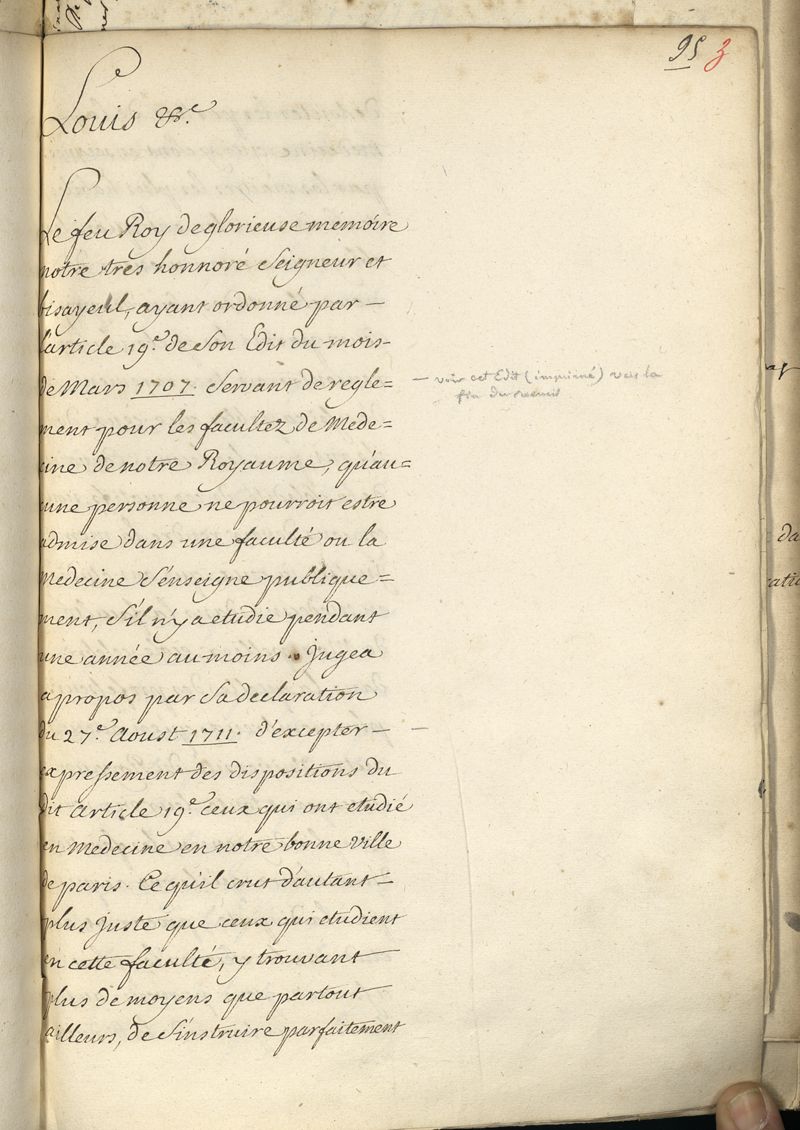 95 3
Louis &c.
Le feu Roy de glorieuse memoire
notre tres honnoré Seigneur et
bisayeul, ayant ordonné par —
l'article 19e. de Son Edit du mois-
de Mars 1707. Servant de regle=
ment pour les facultez de Mede=
cine de notre Royaume, qu'au=
cune personne ne pourroit estre
admise dans une faculté ou la
Medecine S'enseigne publique=
ment, S'il n'y a etudie pendant
une année au moins. Jugea
a propos par Sa declaration
du 27e. Aoust 1711. d'excepter —
expressement des dispositions du
dit article 19e. ceux qui ont etudié
en Medecine en notre bonne Ville
de paris. Ce qu'il crut d'autant —
plus Juste que ceux qui etudient
en cette faculté, y trouvant
plus de moyens que partout
ailleurs, de S'instruire parfaitement
— voir cet Edit (imprimé) vers la
fin du recueil
—
da